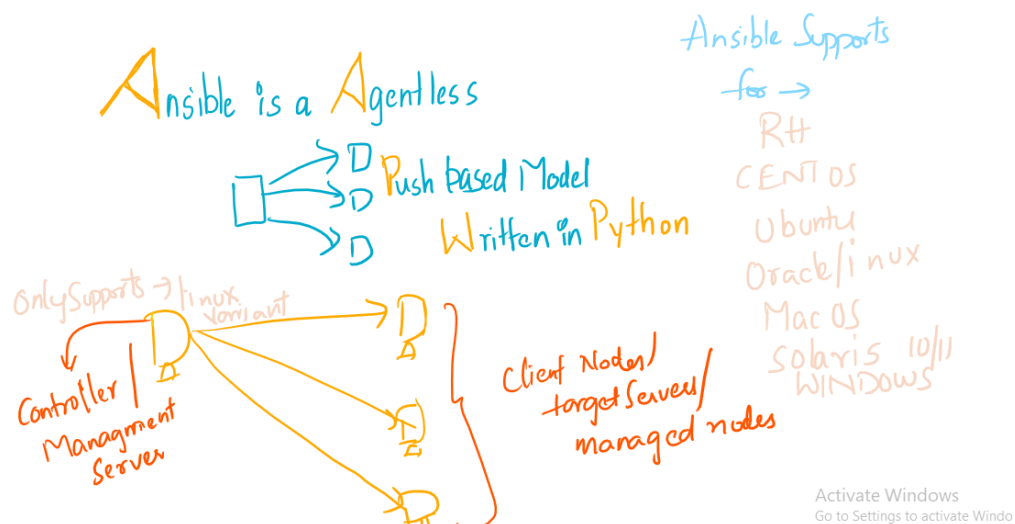 Ansible is a Agentless
Push based Model
Written in Python
Only Supports → linux
variant
Controller /
Managment
Server
Client Nodes /
target Servers /
managed nodes
Ansible Supports
for →
RH
CENTOS
Ubuntu
Oracle linux
Mac OS
Solaris 10/11
WINDOWS
Activate Windows
Go to Settings to activate Windo